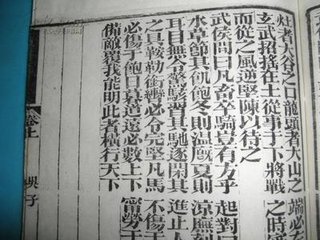 灶者大谷之口龍頭者大山之端必左
玄武招搖在上從事于下將戰之時
而從之風逆堅陳以待之
武侯問曰凡畜卒騎豈有方乎起對
水草節其飢飽冬則温廐夏則凉廡
耳目無令驚駭習其馳逐閑其進止
之具鞍勒銜轡必令完堅凡馬不傷于
必傷于飽日暮道遠必數上下甯勞于
備敵覆我能明此者橫行天下
卷上 吳子